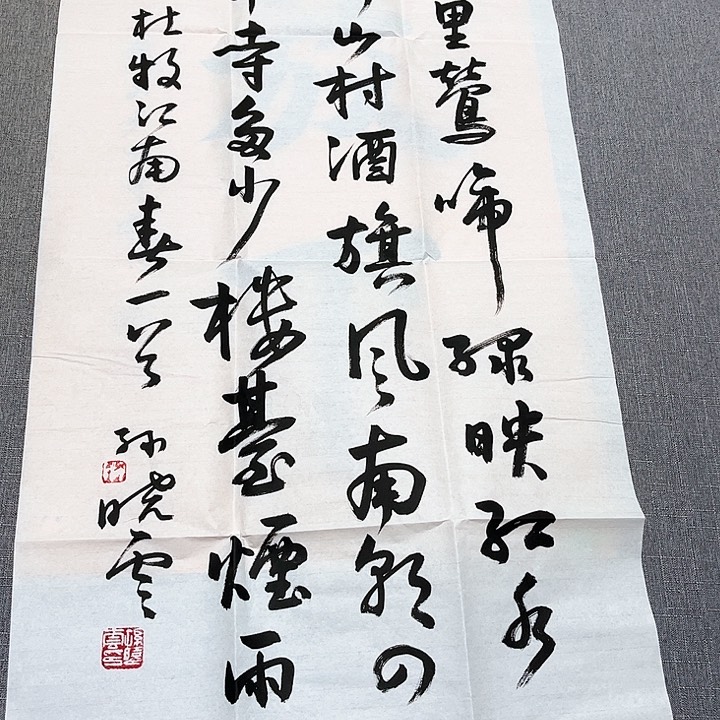 里鶯啼綠映紅水
山村酒旗風南朝四
寺多少樓臺煙雨
杜牧江南春一首
孫曉雲
孫曉雲印